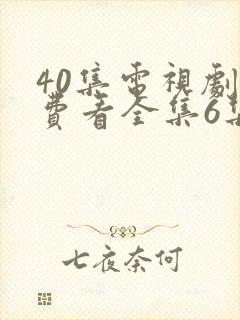 40集電視劇
費看全集6集
七夜奈何